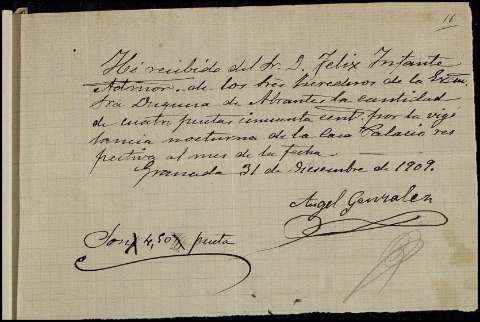 16
He recibido del Sr. D. Felix Infante
Admor. de los Sres herederos de la Exma
Sra Duquesa de Abrantes la cantidad
de cuatro pesetas cincuenta cents por la vigi
lancia nocturna de la Casa Palacio res
pectiva al mes de la fecha
Granada 31 de Diciembre de 1909.
Angel Gonzalez
Son 4,50 peseta